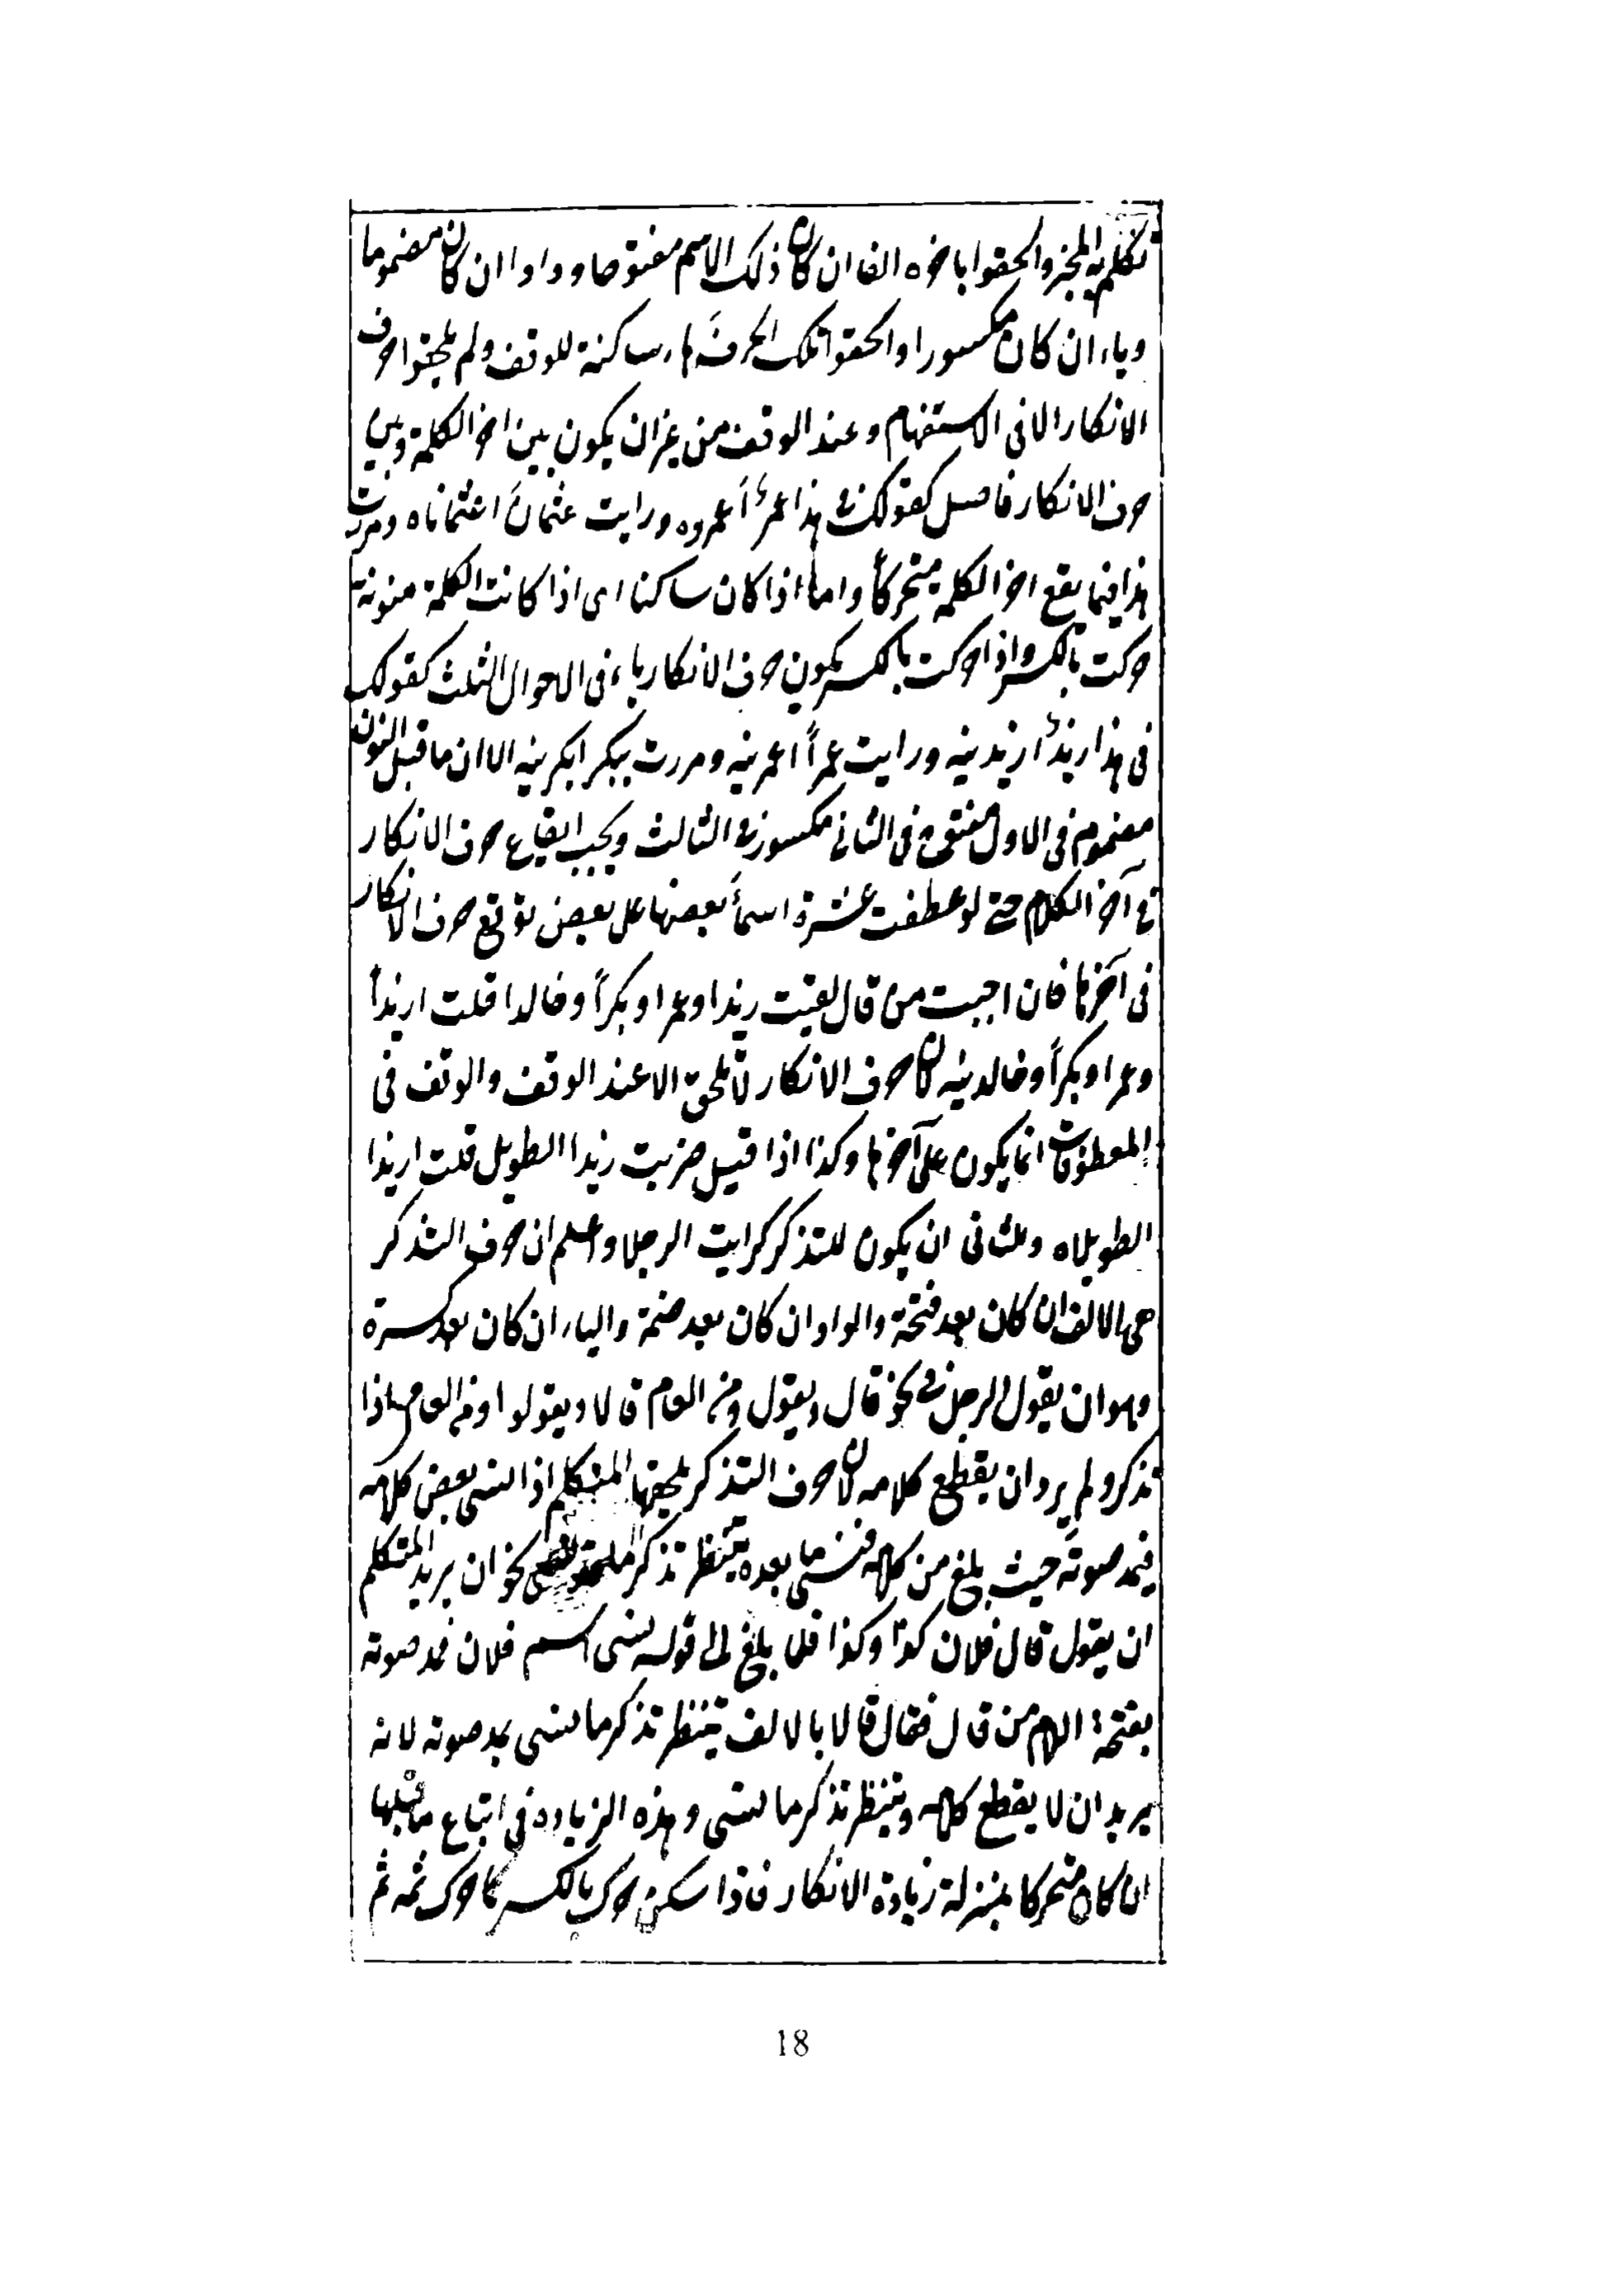 تكلم به المخبر والحقوا باخره الفا ان كان ذلك الاسم مفتوحا وواوا ان كان مضموما
وياء ان كان مكسورا والحقوا تلك الحرف هاء ساكنة للوقف ولم يلحقوا حرف
الانكار الا فى الاستفهام وعند الوقف من غير ان يكون بين اخر الكلمة وبين
حرف الانكار فاصل كقولك فى هذا عمرُ أعمروه ورايت عثمانَ اعثماناه ومررت
هذا فيما يقع اخر الكلمة متحركاً واما اذا كان ساكنا اى اذا كانت الكلمة منونة
حركت بالكسر واذا حركت بالكسر يكون حرف الانكار ياء فى الاحوال الثلث كقولك
فى هذا زيدٌ ازيدنيه ورايت عمراً اعمرنيه ومررت ببكر ابكرنيه الا ان ما قبل النون
مضموم فى الاول مفتوح فى الثانى مكسور فى الثالث ويجب ايقاع حرف الانكار
فى آخر الكلام حتى لو عطفت عشرة اسماً بعضها على بعض توقع حرف الانكار
فى آخرها فان اجبت من قال لقيت زيدا وعمرا وبكراً وخالدا قلت ازيداً
وعمرا وبكراً وخالدنيه لان حرف الانكار لا تلحق الا عند الوقف والوقف فى
المعطوفات انما يكون على آخرها وكذا اذا قيل ضربت زيدا الطويل قلت ازيدا
الطويلاه والثانى ان يكون للتذكر كرايت الرجلا واعلم ان حرف التذكر
هى الالف ان كان بعد فتحة والواو ان كان بعد ضمة والياء ان كان بعد كسرة
وهو ان يقول الرجل فى نحو قال ويقول ومن العام قالا ويقولوا ومن العامى اذا
تذكر ولم يرد ان يقطع كلامه لان حرف التذكر يلحقها المتكلم اذا نسى بعض كلامه
فيمد صوته حيث بلغ من كلامه فنسى ما بعده ينتظر تذكر نحو ان يريد المتكلم
ان يقول قال فلان كذا وكذا فلما بلغ الى قوله نسى اسم فلان فمد صوته
بفتحة اللام من قال فقال قالا بالالف ينتظر تذكر ما نسى بمد صوته لانه
يريد ان لا يقطع كلامه وينتظر تذكر ما نسى وهذه الزيادة فى اتباع ما قبلها
ان كان متحركا بمنزلة زيادة الانكار فاذا سكن حرك بالكسر كما حرك ثمه ثم
18